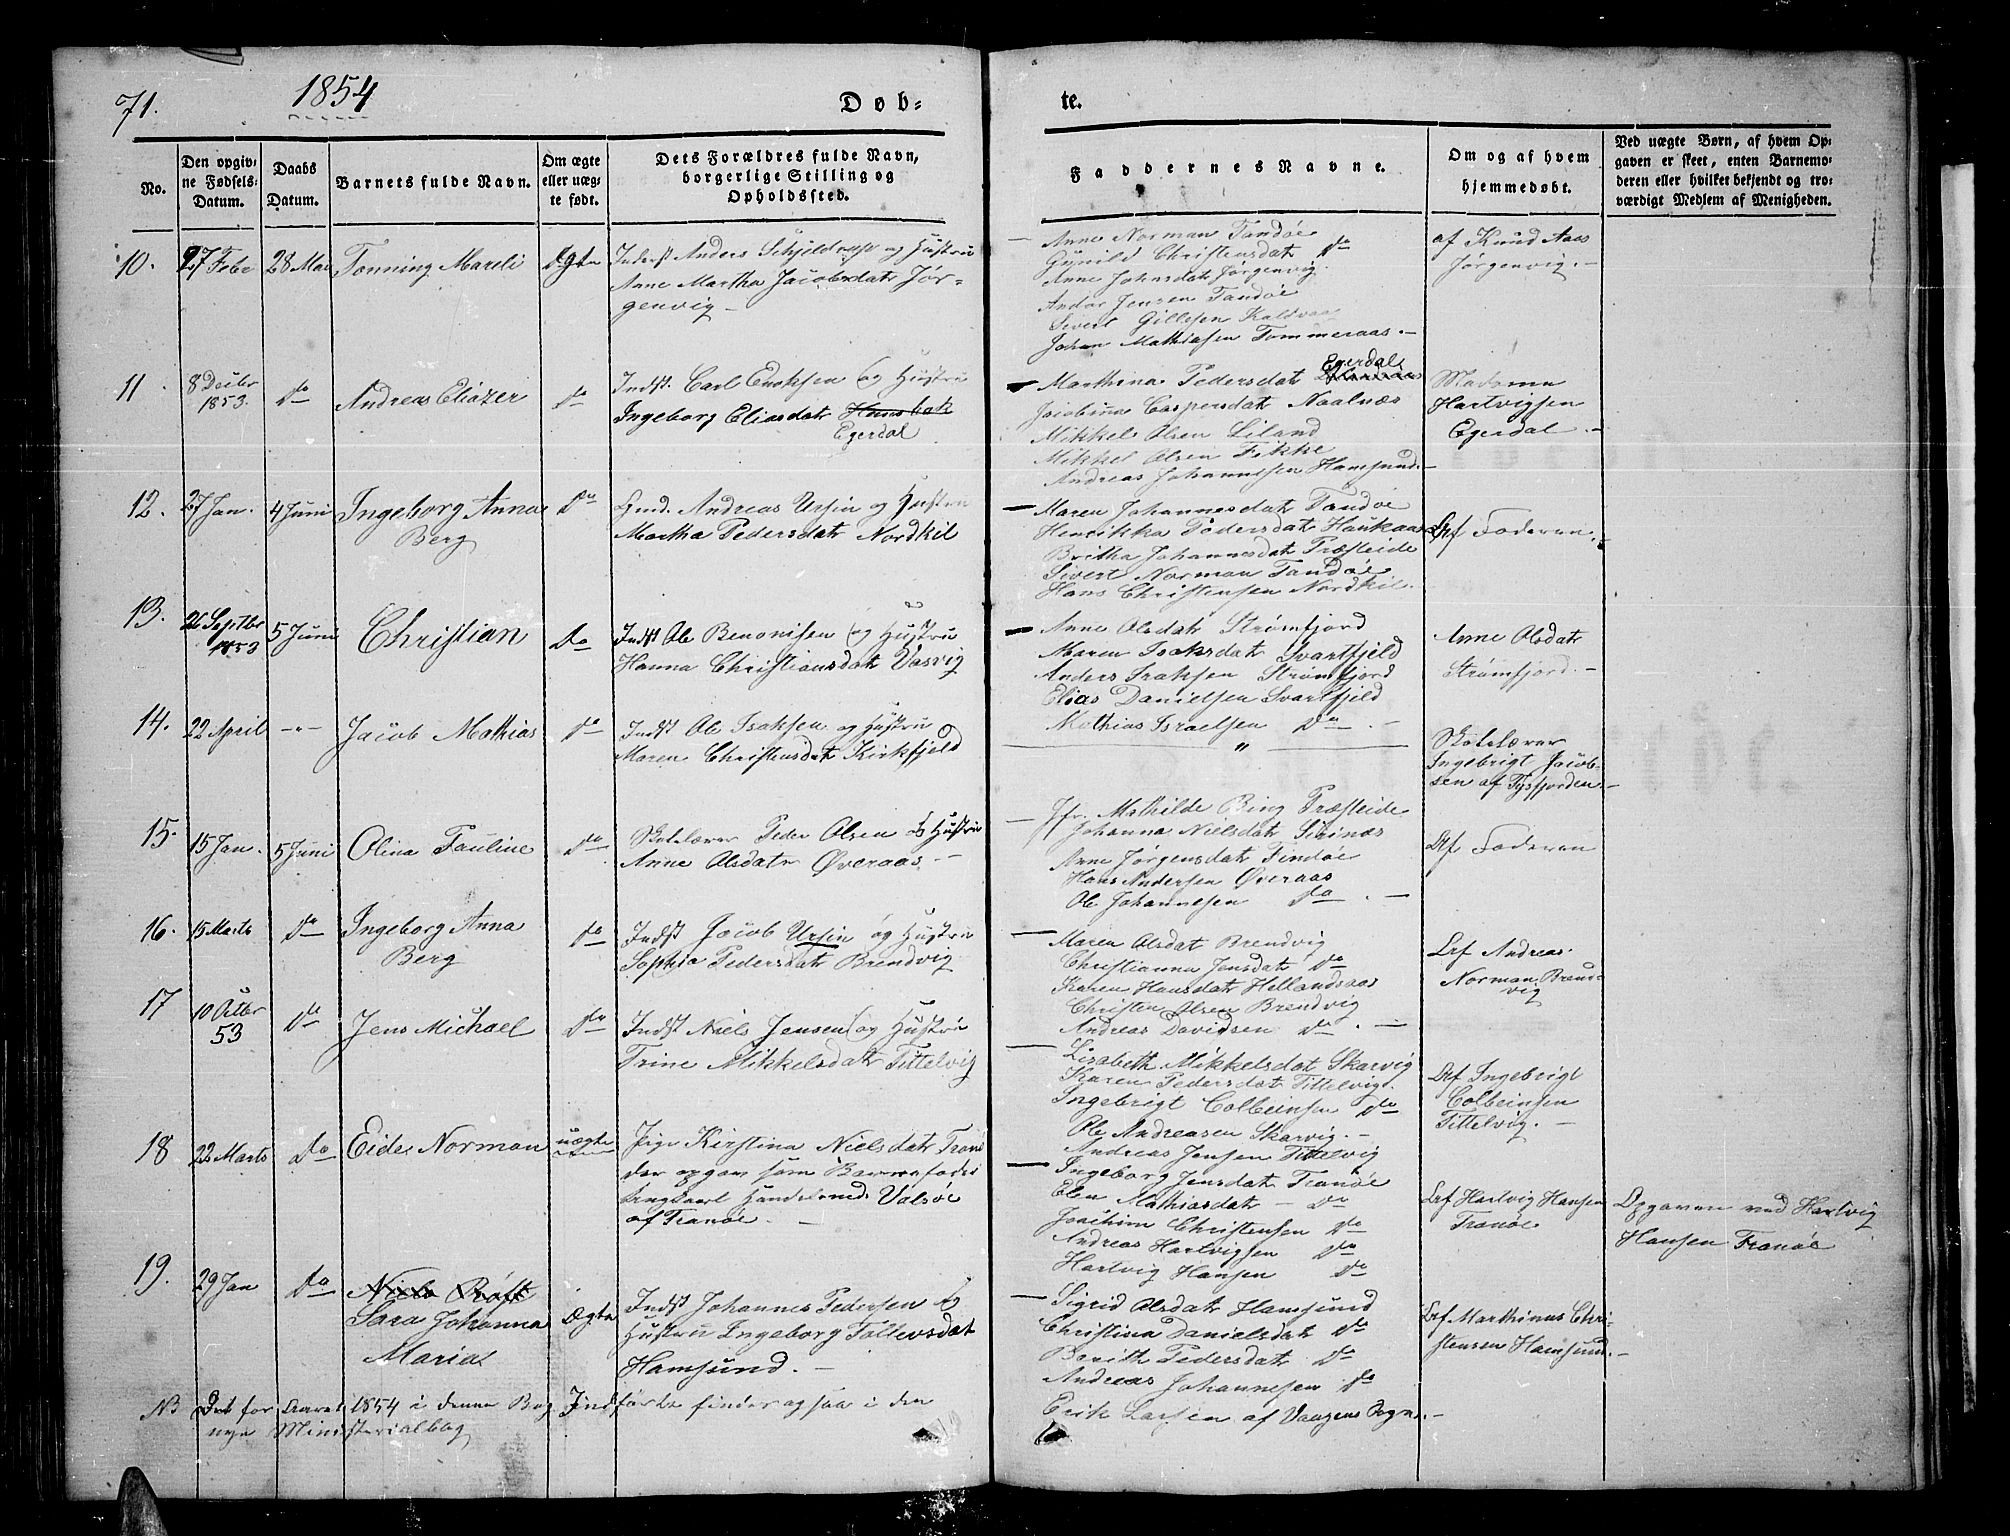 71.
1854
Døb-
te.
No.
Den opgiv-
ne Fødsels-
Datum.
Daabs
Datum.
Barnets fulde Navn.
Om ægte
eller uæg-
te født.
Dets Forældres fulde Navn,
borgerlige Stilling og
Opholdssted.
Faddernes Navne.
Om og af hvem
hjemmedøbt.
Ved uægte Børn, af hvem Op-
gaven er skeet, enten Barnemo-
deren eller hvilket bekjendt og tro-
værdigt Medlem af Menigheden.
10.
27 Febr
28 Mai
Tonning Mareli
Ægte
Inderst Anders og Hustru
Anne Martha Jacobsdatr Jør-
genvig
Anne Norman Tandøe
Gunild Christensdatr do
Anne Johnsdatr Jørgenvig
Andor Jensen Tandøe
Sivert Gillesen Kaldvaa
Johan Mathiasen Tommeraas.
af Knud Aas
Jørgenvig.
11
8 Decbr
1853.
do
Andreas Eliazer
do
Indst. Carl Enoksen og Hustru
Ingeborg Eliasdatr Hunsbak
Egerdal
Egerdal
Marthina Pedersdatr
Jacobina Caspersdatr Naalnæs
Mikkel Olsen Liland
Mikkel Olsen Fikke
Andreas Johannesen Hamsund
Madame
Hartvigsen
Egerdal
12.
27 Jan.
4 Juni
Ingeborg Anna
Berg
do
Andreas Ursin og Hustru
Martha Pedersdatr Nordkil
Maren Johannesdatr Tandøe
Henrikka Pedersdatr Haukaas
Britha Johannesdatr Præsteide
Sivert Norman Tandøe
Hans Christensen Nordkil.
af Faderen
13.
26 Septbr
1853
5 Juni
Christian
do
Indst Ole Benonisen og Hustru
Hanna Christiansdatr Vasvig
Anne Olsdatr Strømfjord
Maren Isaksdatr Svartfjeld
Anders Isaksen Strømfjord
Elias Danielsen Svartfjeld
Mathias Israelsen do
Anne Olsdatr
Strømfjord
14.
22 April
-"-
Jacob Mathias
do
Indst Ole Isaksen og Hustru
Maren Christensdatr Kirkfjeld
"
Skolelærer
Ingebrigt Jacob-
sen af Tysfjorden
15.
15 Jan.
5 Juni
Olina Pauline
do
Skolelærer Peder Olsen og Hustru
Anne Olsdatr Øveraas
Jfr. Mathilde Bing Præsteide
Johanna Nielsdatr
Anne Jørgensdatr Findøe
Hans Andersen Øveraas
Ole Johannesen do
af Faderen
16.
15 Marts
do
Ingeborg Anna
Berg
do
Indst Jacob Ursin og Hustru
Sophia Pedersdatr Brendvig
Maren Olsdat Brendvig
Christianna Jensdatr do
Karen Hansdatr Hellandsaas
Christen Olsen Brendvig
Andreas Davidsen do
af Andreas
Norman Brend-
vig
17
10 Octbr
53
do
Jens Michael
do
Indst Niels Jensen og Hustru
Trine Mikkelsdatr Tittelvig
Lisabeth Mikkelsdat Skarvig
Karen Pedersdat Tittelvig
Ingebrigt Colbeinsen do
Ole Andreasen Skarvig.
Andreas Jensen Tittelvig
af Ingebrigt
Colbeinsen
Tittelvig.
18
22 Marts
do
Eide Norman
uægte
Pige Kirstina Nielsdatr Tranø
der opgav som Barnefader
Handelsmed: Valsøe
af Tranøe.
Ingeborg Jensdatr Tranøe
Elen Mathiasdatr do
Joachim Christensen do
Andreas Hartvigsen do
Hartvig Hansen do
af Hartvig Hansen
Tranøe
Opgaven ved Hartvig
Hansen Tranøe
19.
29 Jan
do
Niels Røst
Sara Johanna
Maria
Ægte
Indst Johannes Pedersen og
Hustru Ingeborg Tollevsdat
Hamsund.
Sigrid Olsdatr Hamsund
Christina Danielsdatr do
Berith Pedersdatr do
Andreas Johannesen do
Erik Larsen af Vaagens Sogn.
af Marthinus Chri-
stensen Hamsund.
NB Det for Aaret 1854 i denne Bog Indførte findes ogsaa i den
nye Ministerialbog